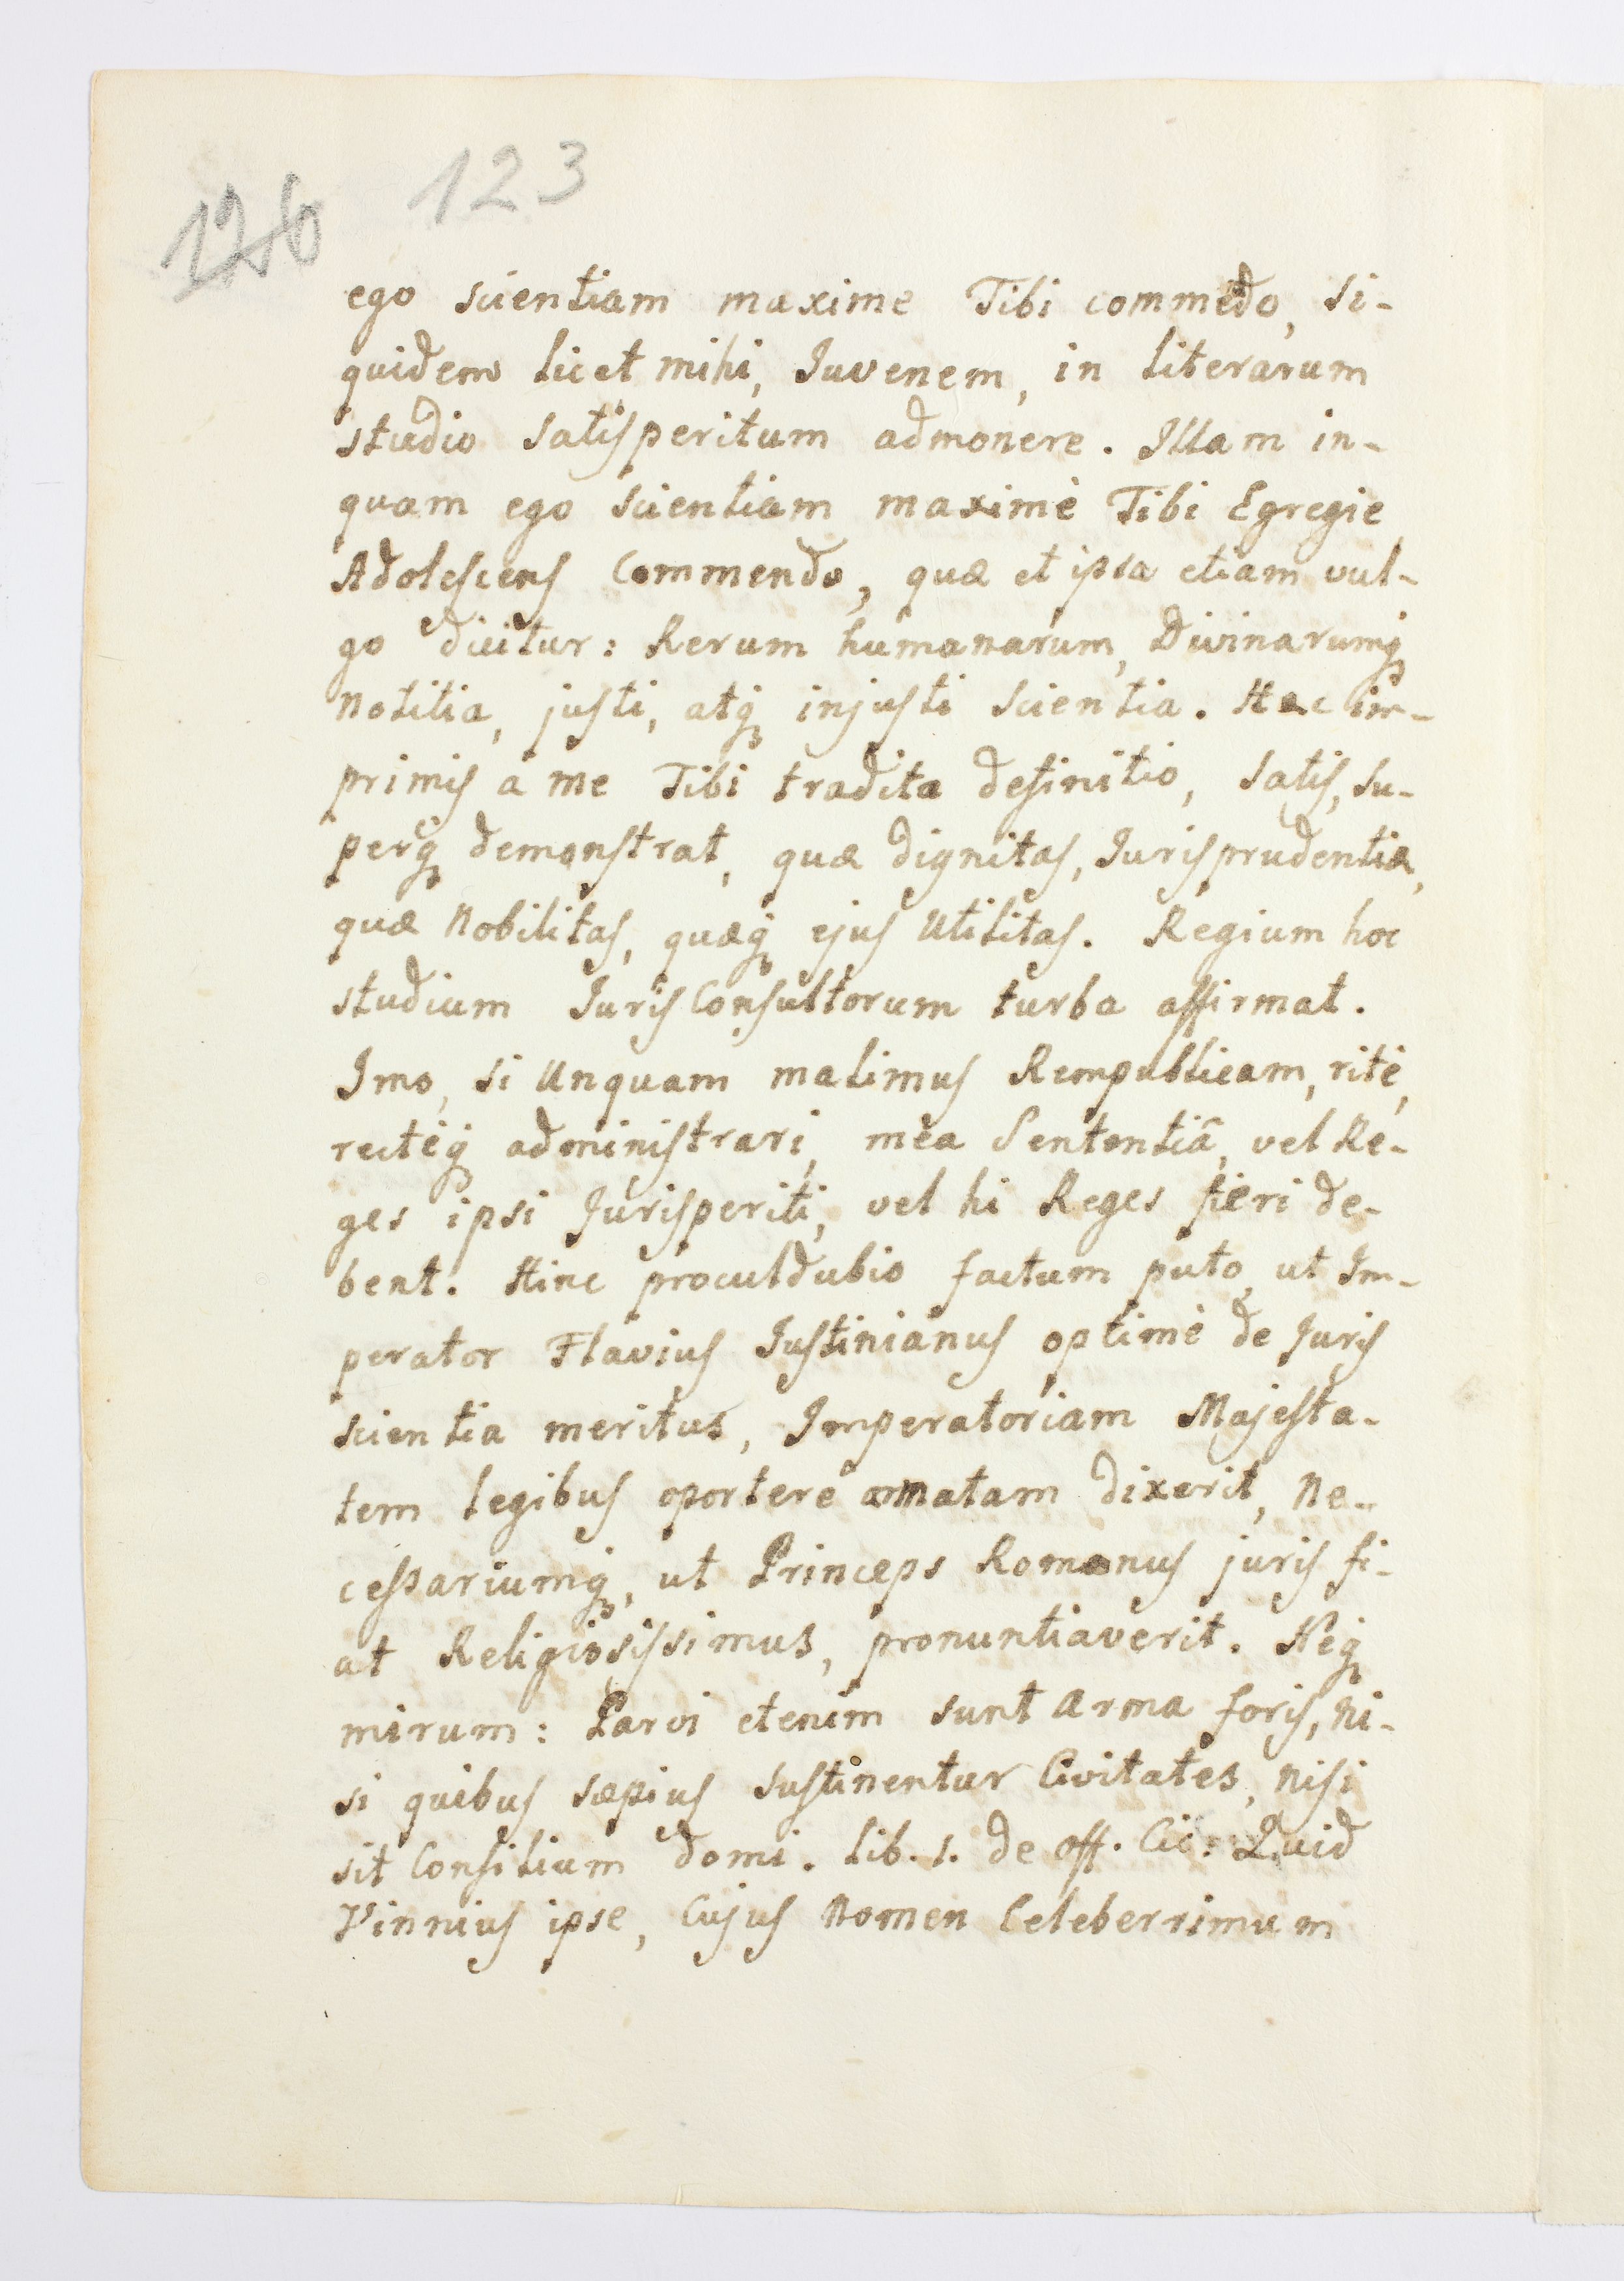 123
126
ego scientiam maxime Tibi commeđo, si-
quidem licet mihi, Iuvenem, in literarum
studio satisperitum admonere. Illam in-
quam ego scientiam maximè Tibi Egregie
Adolescens Commendo, quæ et ipsa etiam vul-
go dicitur: Rerum humanarum, Divinarumq́
Notitia, justi, atq́ injusti scientia. Hæc im-
primis a me Tibi tradita definitio, satis, su-
perq́ demonstrat, quæ dignitas, Iurisprudentiæ,
quæ Nobilitas, quæq́ ejus Utilitas. Regium hoc
studium IurisConsultorum turba affirmat.
Imo, si Unquam malimus Rempublicam, ritè,
rectèq́ administrari, mea Sententiâ, vel Re-
ges ipsi Jurisperiti, vel hi Reges fieri de-
bent. Hinc proculdubio factum puto, ut Im-
perator Flavius Iustinianus optimè de Juris
scientia meritus, Imperatoriam Majesta-
tem legibus oportere armatam dixerit, Ne-
cessariumq́, ut Princeps Romanus juris fi-
at Religiosissimus, pronuntiaverit. Neq́
mirum: Parvi etenim sunt Arma foris, ni-
si quibus sæpius sustinentur Civitates, nisi
sit Consilium domi. lib. 1. de off. Cic: Quid
Vinnius ipse, Cujus Nomen Celeberrimum